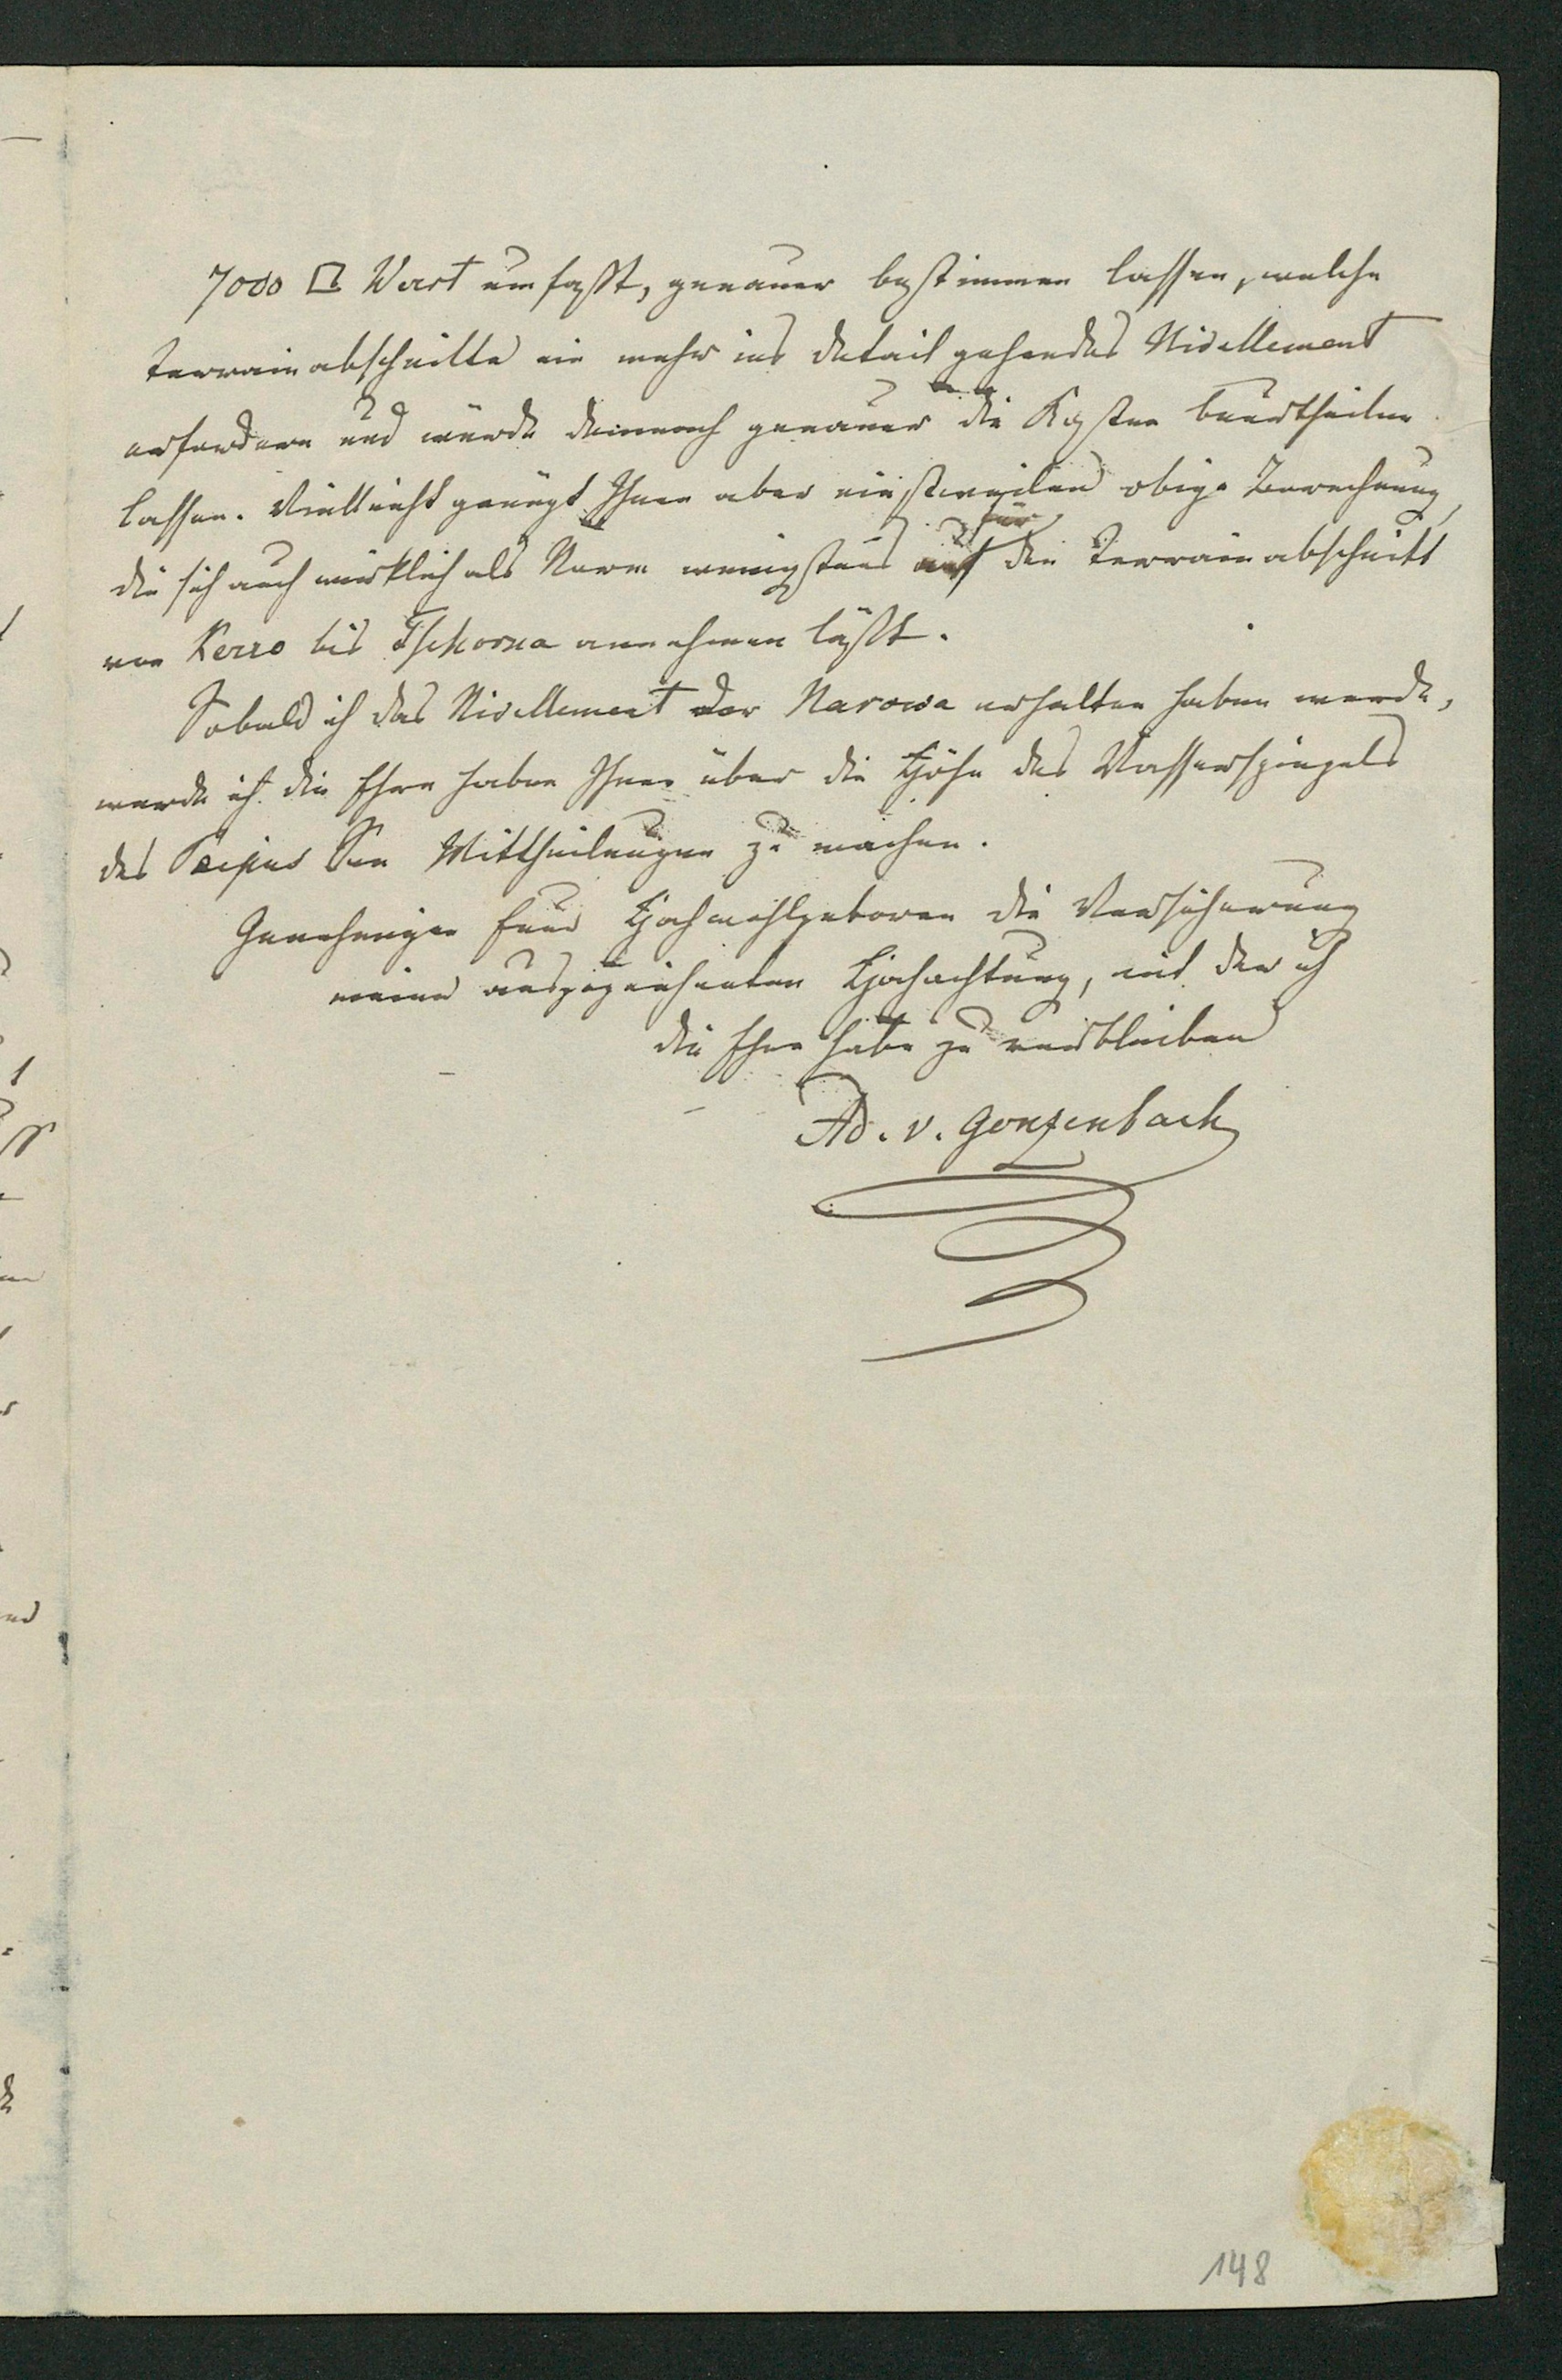 7000 □ Werst umfaßt, genauer bestimmen lassen, welche
Terrainabschnitte ein mehr ins Detail gehendes Nivellement
erfordern und würde demnach genauer die Kosten beurtheilen
lassen. Vielleicht genügt Ihnen aber einstweilen obige Berechnung,
die sich auch wirklich als Norm wenigstens für den Terrainabschnitt
von Kerro bis Tschorna annehmen läßt.
Sobald ich das Nivellement der Narowa erhalten haben werde,
werde ich die Ehre haben Ihnen über die Höhe des Wasserspiegels
des Peipus See Mittheilungen zu machen.
Genehmigen Euer Hochwohlgeboren die Versicherung
meiner ausgezeichneten Hochachtung, mit der ich
die Ehre habe zu verbleiben
Ad. v. Gonzenbach
148